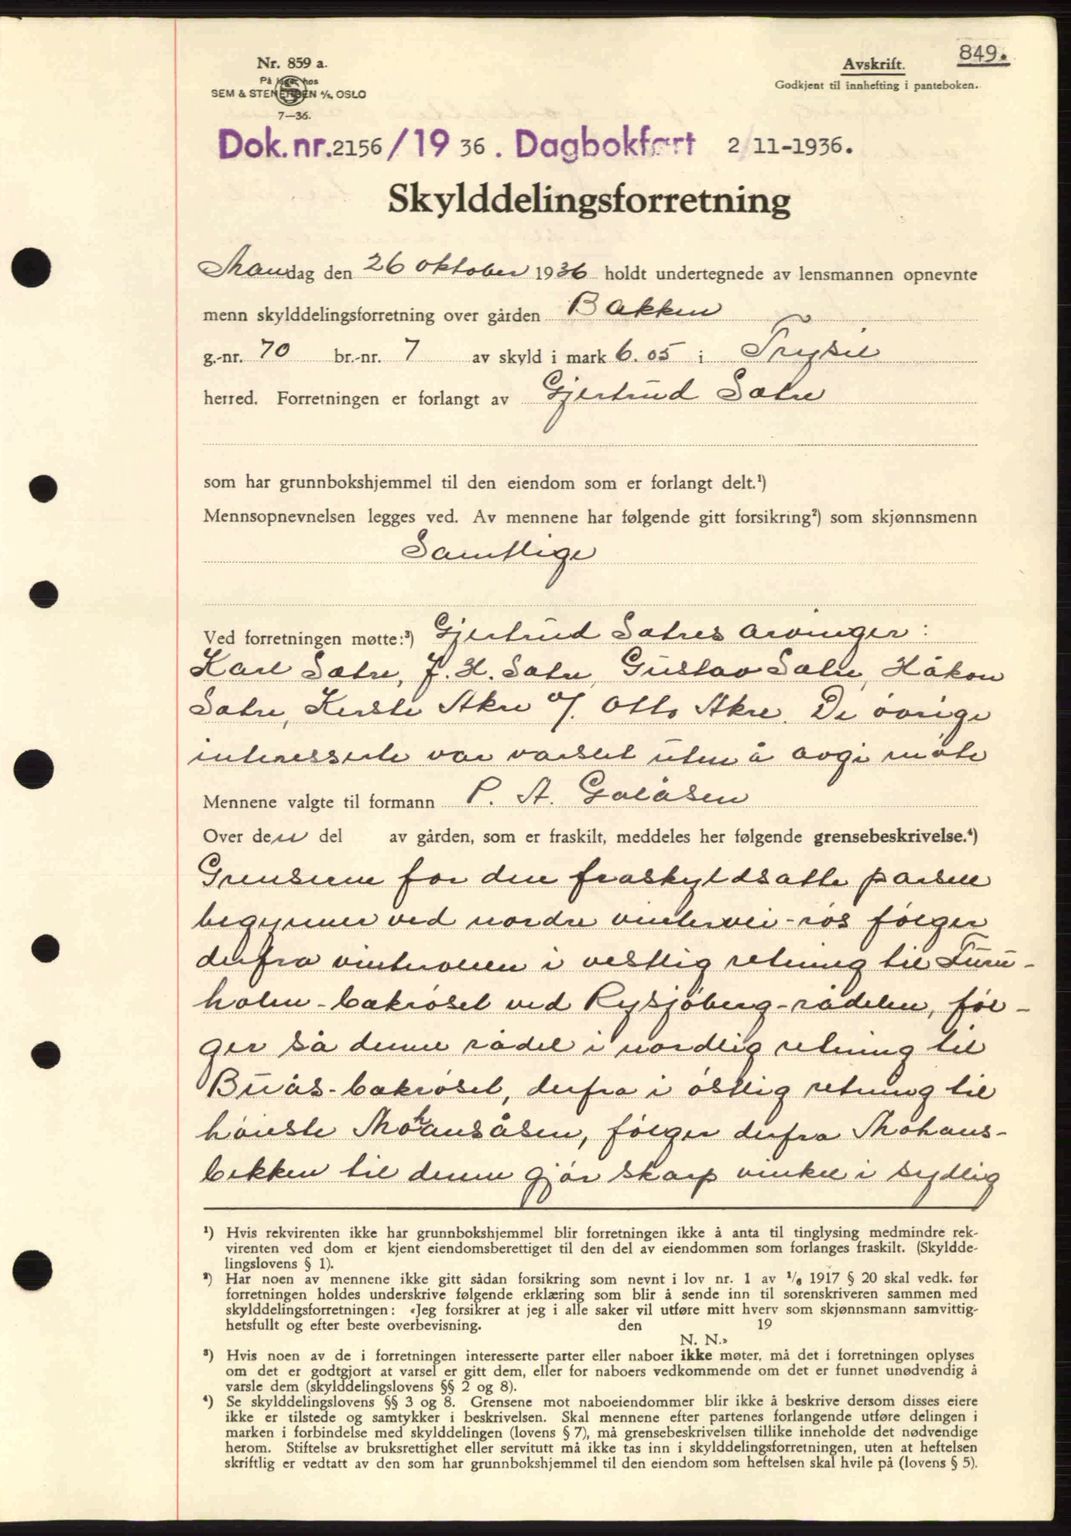 849.
Nr. 859 a.
På lager hos
SEM & STENERSEN A/S, OSLO
7—36.
Avskrift.
Godkjent til innhefting i panteboken.
Dok. nr. 2156 / 19 36 . Dagbokført 2/11-1936.
Skylddelingsforretning
Mandag den 26 oktober 1936 holdt undertegnede av lensmannen opnevnte
menn skylddelingsforretning over gården Bakken
g.-nr. 70 br.-nr. 7 av skyld i mark 6.05 i Trysil
herred. Forretningen er forlangt av Gjertrud Sætre
som har grunnbokshjemmel til den eiendom som er forlangt delt.¹)
Mennsopnevnelsen legges ved. Av mennene har følgende gitt forsikring²) som skjønnsmenn
Samtlige
Ved forretningen møtte:³) Gjertrud Sætres arvinger:
Karl Sætre, J. H. Sætre, Gustav Sætre, Håkon
Sætre, Kersti Akre v/ Otto Akre. De övrige
interesserte var varslet uten å avgi möte
Mennene valgte til formann P. A. Galåsen
Over den del av gården, som er fraskilt, meddeles her følgende grensebeskrivelse.⁴)
Grensene for den fraskyldsatte parsell
begynner ved nordre vintervei-rös fölger
derfra vinterveien i vestlig retning til Furu-
holm-bækröset ved Rysjöberg-rådelen, föl-
ger så denne rådel i nordlig retning til
Buås-bækröset, derfra i östlig retning til
höieste Mohansåsen, fölger derfra Mohans-
bekken til denne gjör skarp vinkel i sydlig
¹) Hvis rekvirenten ikke har grunnbokshjemmel blir forretningen ikke å anta til tinglysing medmindre rek-
virenten ved dom er kjent eiendomsberettiget til den del av eiendommen som forlanges fraskilt. (Skyldde-
lingslovens § 1).
²) Har noen av mennene ikke gitt sådan forsikring som nevnt i lov nr. 1 av 1/6 1917 § 20 skal vedk. før
forretningen holdes underskrive følgende erklæring som blir å sende inn til sorenskriveren sammen med
skylddelingsforretningen: «Jeg forsikrer at jeg i alle saker vil utføre mitt hverv som skjønnsmann samvittig-
hetsfullt og efter beste overbevisning. den 19
N. N.»
³) Hvis noen av de i forretningen interesserte parter eller naboer ikke møter, må det i forretningen oplyses
om det er godtgjort at varsel er gitt dem, eller for naboers vedkommende om det er funnet unødvendig å
varsle dem (skylddelingslovens §§ 2 og 8).
⁴) Se skylddelingslovens §§ 3 og 8. Grensene mot naboeiendommer blir ikke å beskrive dersom disses eiere
ikke er tilstede og samtykker i beskrivelsen. Skal mennene efter partenes forlangende utføre delingen i
marken i forbindelse med skylddelingen (lovens § 7), må grensebeskrivelsen tillike inneholde det nødvendige
herom. Stiftelse av bruksrettighet eller servitutt må ikke tas inn i skylddelingsforretningen, uten at heftelsen
skriftlig er vedtatt av den som har grunnbokshjemmel til den eiendom som heftelsen skal hvile på (lovens § 5).